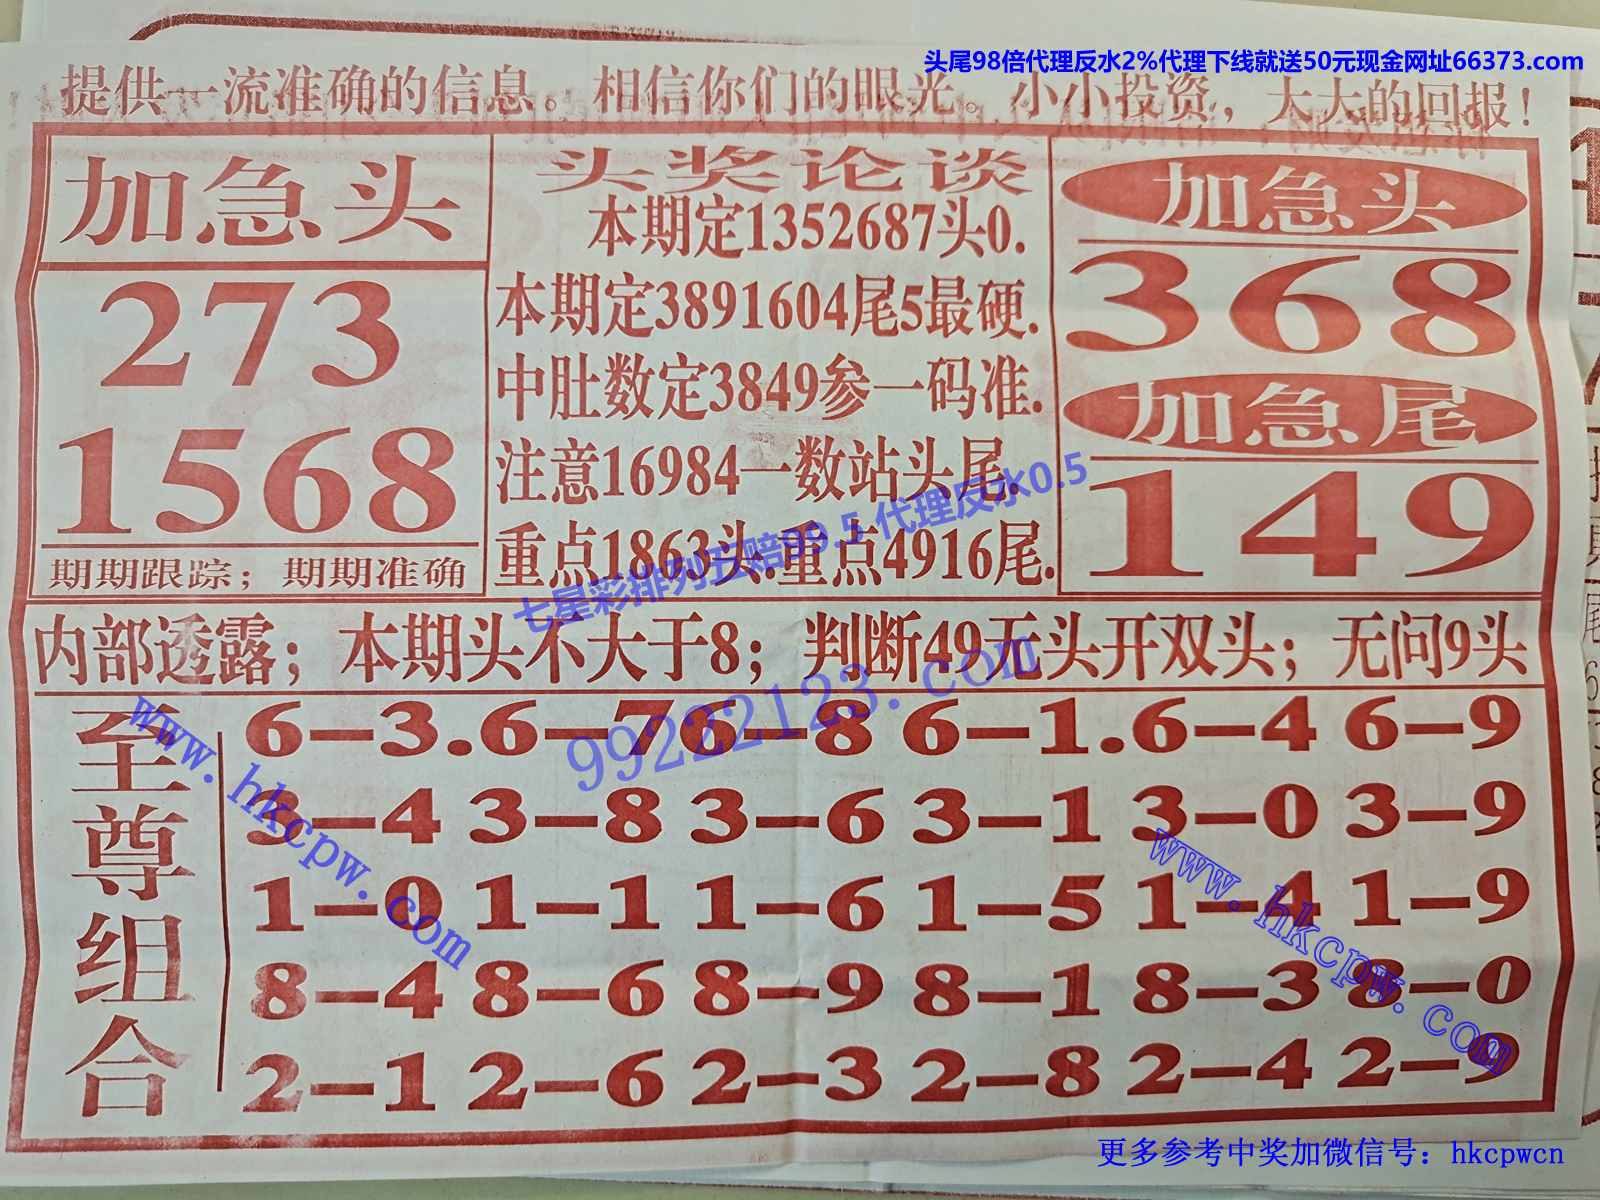 头尾98倍代理反水2%代理下线就送50元现金网址66373.com
提供一流准确的信息。相信你们的眼光。小小投资，大大的回报！
加急头
273
1568
期期跟踪；期期准确
头奖论谈
本期定1352687头0.
本期定3891604尾5最硬.
中肚数定3849参一码准.
注意16984一数站头尾.
重点1863头.重点4916尾.
加急头
368
加急尾
149
七星彩排列五赔99.5 代理反水0.5
99222123.com
内部透露；本期头不大于8；判断49无头开双头；无问9头
至尊组合
6—3.6—7 6—8 6—1.6—4 6—9
3—4 3—8 3—6 3—1 3—0 3—9
1—0 1—1 1—6 1—5 1—4 1—9
8—4 8—6 8—9 8—1 8—3 8—0
2—1 2—6 2—3 2—8 2—4 2—9
www.hkcpw.com
www.hkcpw.com
更多参考中奖加微信号：hkcpwcn